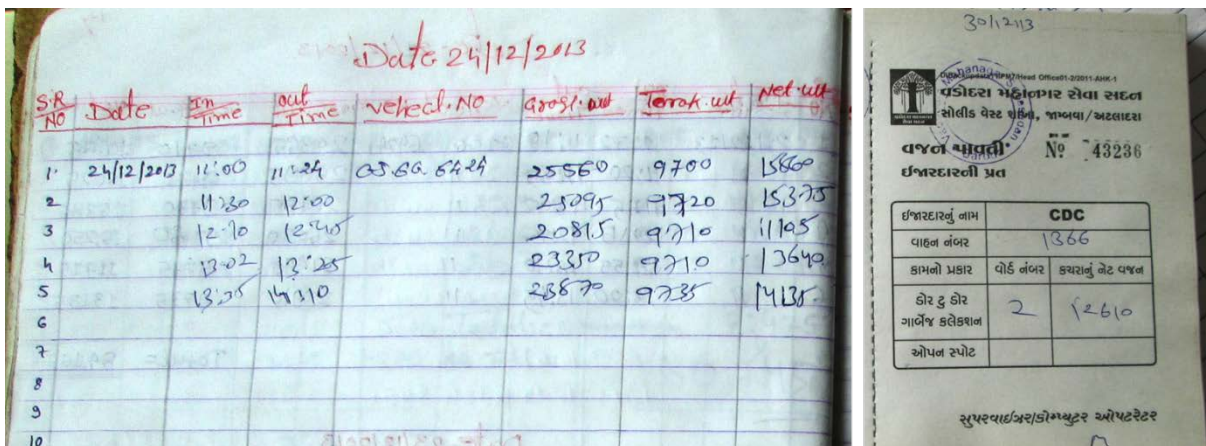 Date 24/12/2013
S.R NO Date In Time out Time vehecl.NO Gross.wt Tarak.wt Net.wt
1. 24/12/2013 11:00 11:24 6424 25560 9700 15860
2 11:30 12:00 25095 9720 15375
3 12:10 12:45 20815 9710 11105
4 13:02 13:25 23350 9710 13640
5 14:10 23870 9735 14135
6
7
8
9
10
30/12/13
વડોદરા મહાનગર સેવા સદન
સોલીડ વેસ્ટ શાખા, જામ્બવા/અટલાદરા
વજન પાવતી Nº 43236
ઈજારદારની પ્રત
ઈજારદારનું નામ CDC
વાહન નંબર 1366
કામનો પ્રકાર વોર્ડ નંબર કચરાનું નેટ વજન
ડોર ટુ ડોર ગાર્બેજ કલેકશન 2 12610
ઓપન સ્પોટ
સુપરવાઈઝર/કોમ્પ્યુટર ઓપરેટર